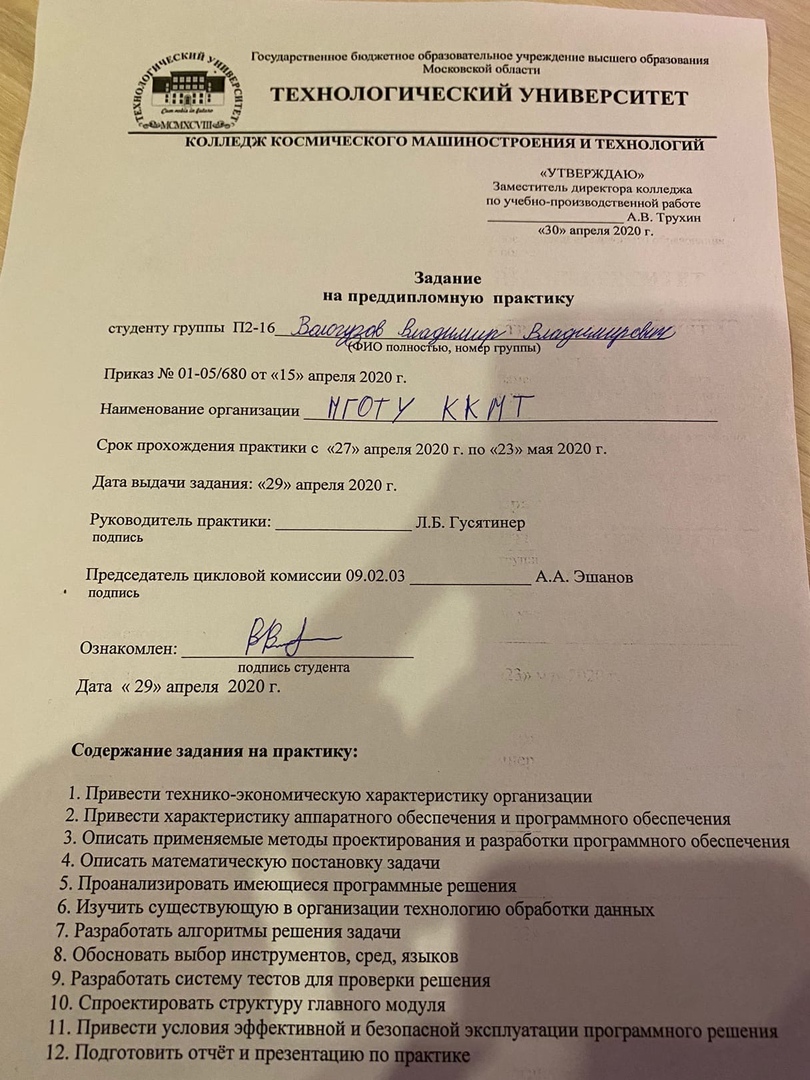 ТЕХНОЛОГИЧЕСКИЙ УНИВЕРСИТЕТ
MCMXCVIII
Государственное бюджетное образовательное учреждение высшего образования
Московской области
ТЕХНОЛОГИЧЕСКИЙ УНИВЕРСИТЕТ
КОЛЛЕДЖ КОСМИЧЕСКОГО МАШИНОСТРОЕНИЯ И ТЕХНОЛОГИЙ
«УТВЕРЖДАЮ»
Заместитель директора колледжа
по учебно-производственной работе
А.В. Трухин
«30» апреля 2020 г.
Задание
на преддипломную практику
студенту группы П2-16 Вологузов Владимир Владимирович
(ФИО полностью, номер группы)
Приказ № 01-05/680 от «15» апреля 2020 г.
Наименование организации МГОТУ ККМТ
Срок прохождения практики с «27» апреля 2020 г. по «23» мая 2020 г.
Дата выдачи задания: «29» апреля 2020 г.
Руководитель практики: Л.Б. Гусятинер
подпись
Председатель цикловой комиссии 09.02.03 А.А. Эшанов
подпись
Ознакомлен:
подпись студента
Дата « 29» апреля 2020 г.
Содержание задания на практику:
1. Привести технико-экономическую характеристику организации
2. Привести характеристику аппаратного обеспечения и программного обеспечения
3. Описать применяемые методы проектирования и разработки программного обеспечения
4. Описать математическую постановку задачи
5. Проанализировать имеющиеся программные решения
6. Изучить существующую в организации технологию обработки данных
7. Разработать алгоритмы решения задачи
8. Обосновать выбор инструментов, сред, языков
9. Разработать систему тестов для проверки решения
10. Спроектировать структуру главного модуля
11. Привести условия эффективной и безопасной эксплуатации программного решения
12. Подготовить отчёт и презентацию по практике